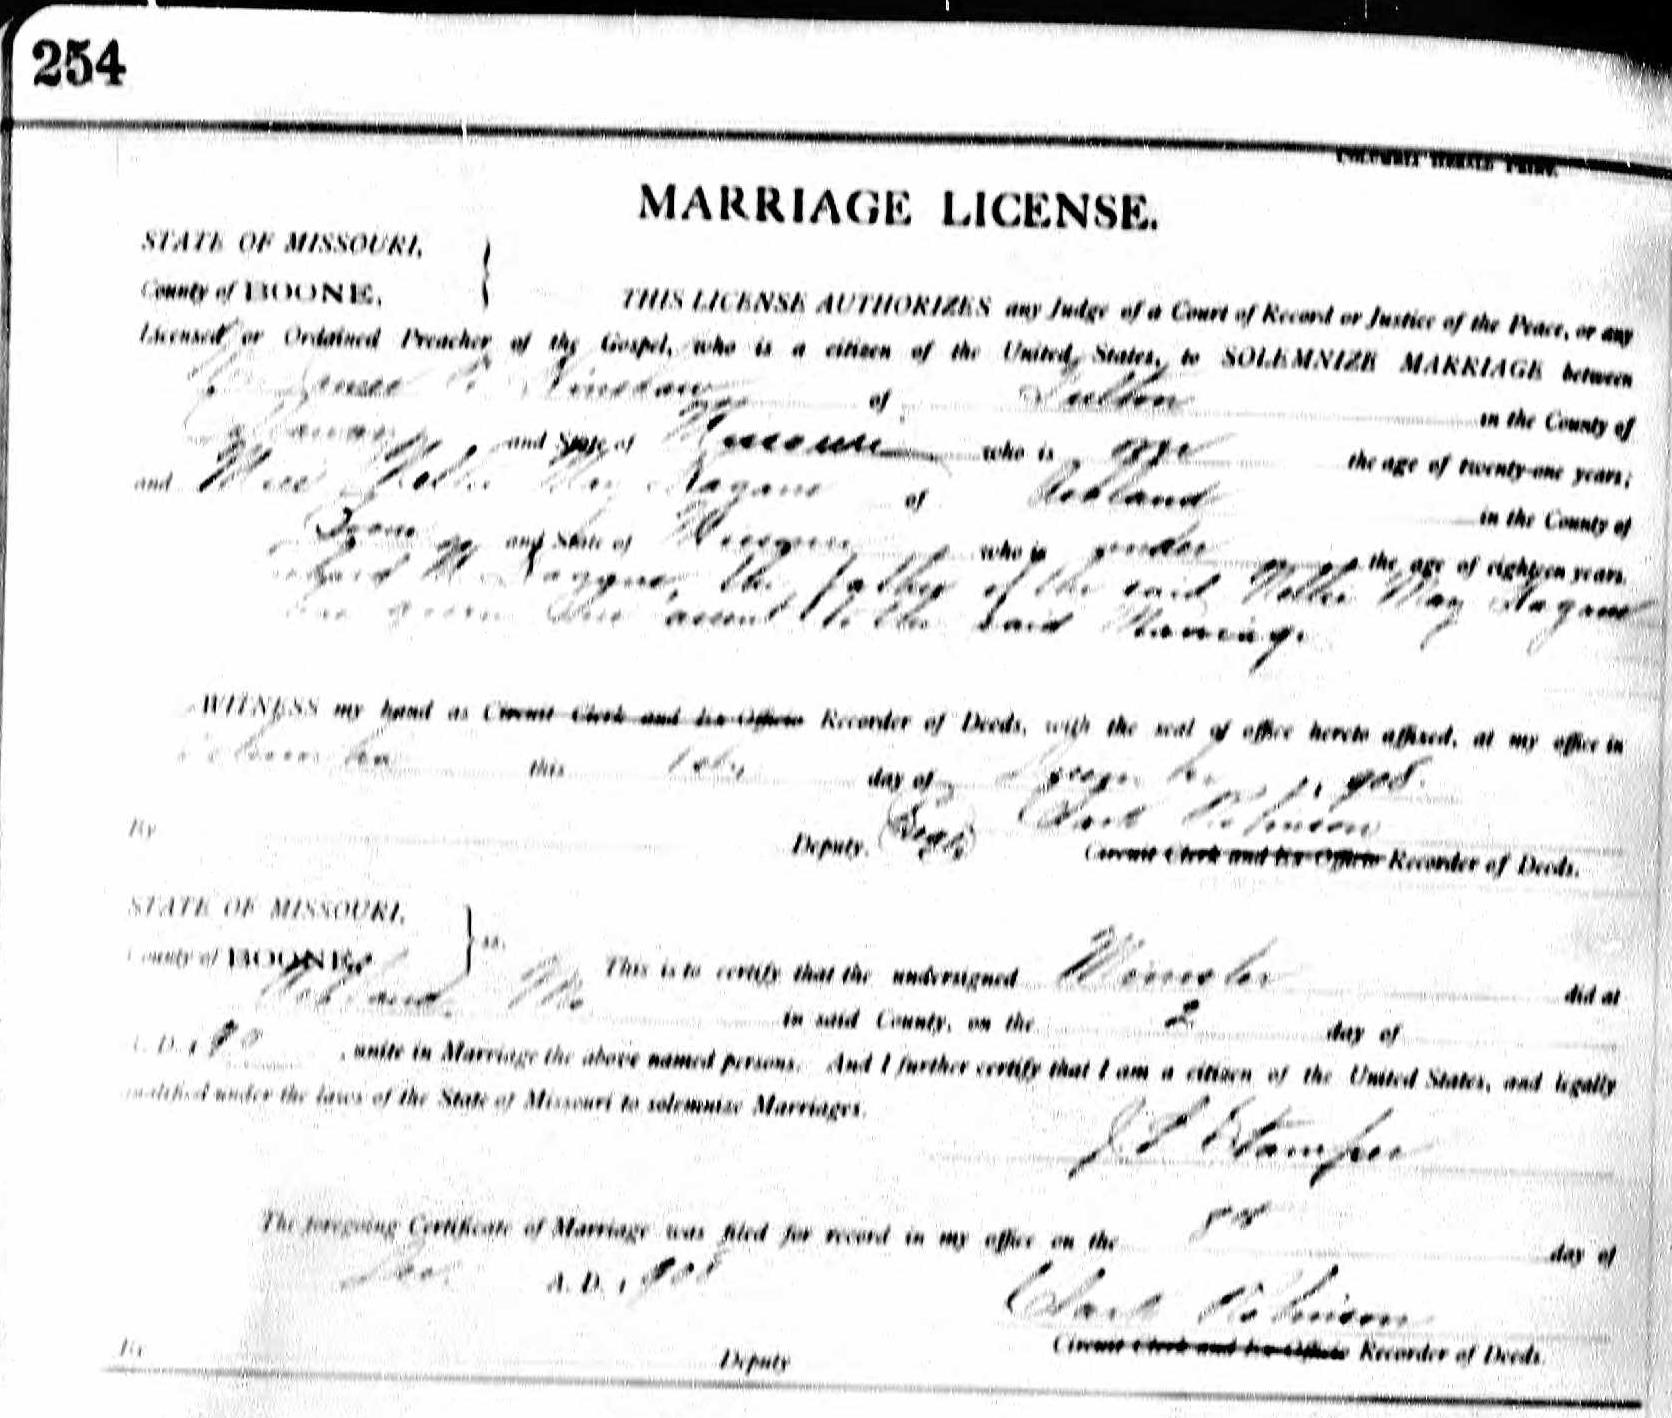 254
COLUMBIA HERALD PRINT.
MARRIAGE LICENSE.
STATE OF MISSOURI,
County of BOONE,
THIS LICENSE AUTHORIZES any Judge of a Court of Record or Justice of the Peace, or any
Licensed or Ordained Preacher of the Gospel, who is a citizen of the United States, to SOLEMNIZE MARRIAGE between
of in the County of
and State of Missouri who is over the age of twenty-one years;
and Miss Nellie May of Ashland in the County of
Boone and State of Missouri who is under the age of eighteen years.
the father of the said Nellie May
has given his assent to the said Marriage
WITNESS my hand as Circuit Clerk and Ex-Officio Recorder of Deeds, with the seal of office hereto affixed, at my office in
Columbia this 1st day of December 1908.
By Deputy. (Seal) Clark Robinson
Circuit Clerk and Ex-Officio Recorder of Deeds.
STATE OF MISSOURI,
County of BOONE, } ss.
This is to certify that the undersigned Minister did at
Ashland, Mo in said County, on the 2 day of
A. D. 190 , unite in Marriage the above named persons. And I further certify that I am a citizen of the United States, and legally
qualified under the laws of the State of Missouri to solemnize Marriages.
Stamper
The foregoing Certificate of Marriage was filed for record in my office on the day of
Dec. A. D. 1908 Clark Robinson
By Deputy Circuit Clerk and Ex-Officio Recorder of Deeds.